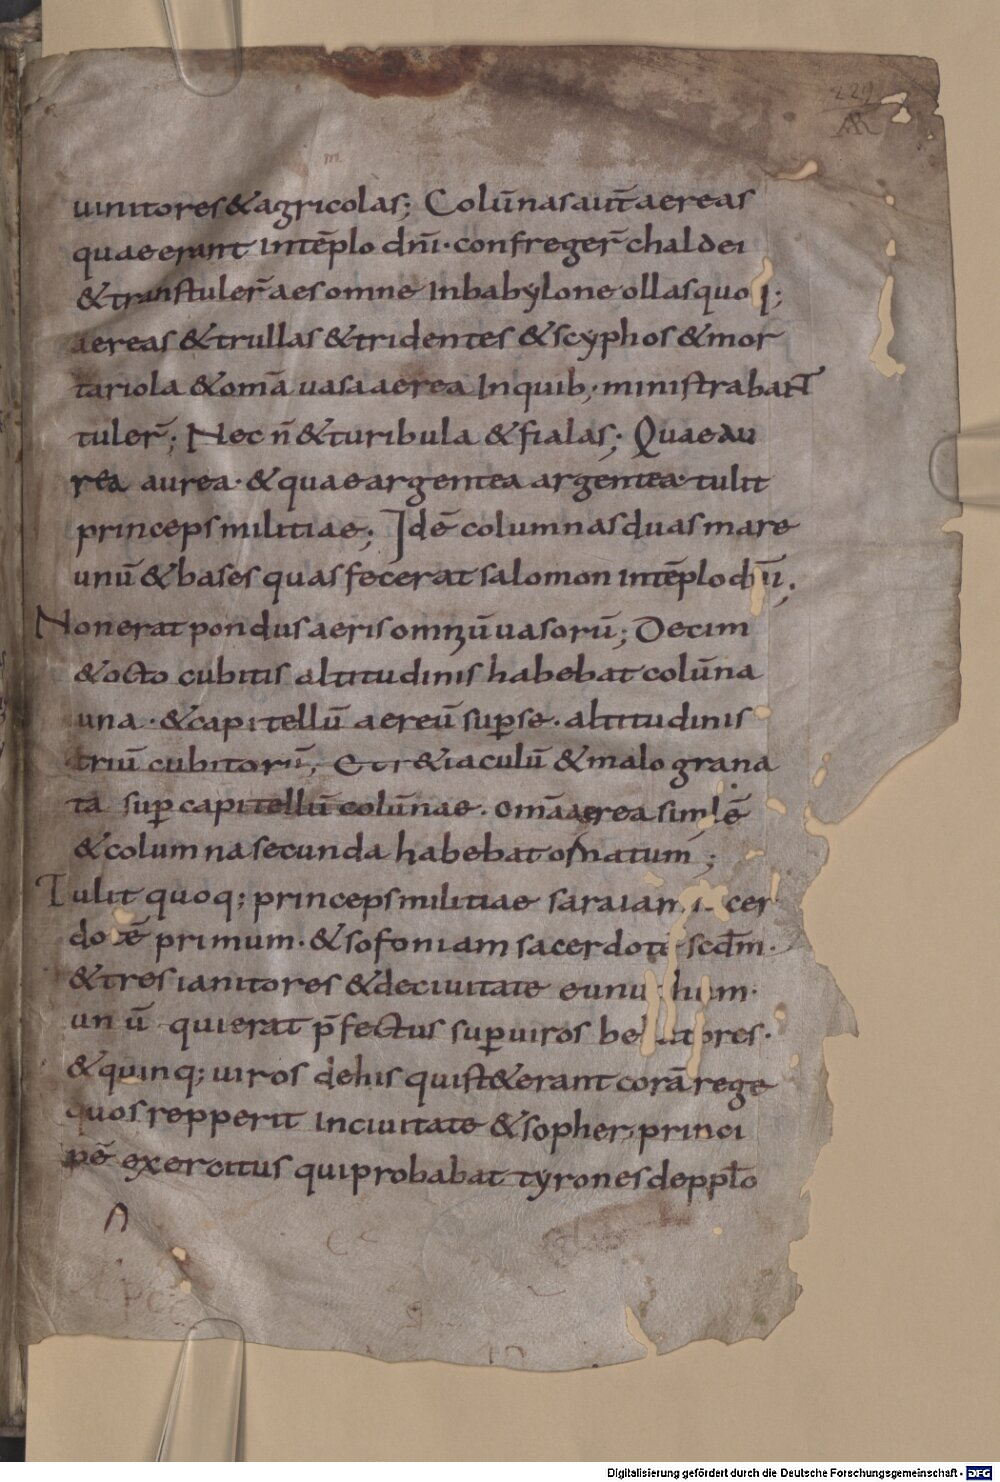 229
AR
uinitores & agricolas; Colūnas aut̄ aereas
quae erant in tēplo dn̄i · confreger̄ chaldei
& transtuler̄ aes omne in babylone ollas quoq;
aereas & trullas & tridentes & scyphos & mor
tariola & om̄a uasa aerea in quib; ministrabant
tuler̄; Nec n̄ & turibula & fialas; Quae au
rea aurea · & quae argentea argentea · tulit
princeps militiae; Idē columnas duas mare
unū & bases quas fecerat salomon in tēplo dn̄i;
Non erat pondus aeris omniū uasorū; Decim
& octo cubitis altitudinis habebat colūna
una · & capitellū aereū sup se · altitudinis
triū cubitorū; & iaculū & malo grana
ta sup capitellū colūnae · om̄a aerea similē
& columna secunda habebat ornatum;
Tulit quoq; princeps militiae saraian cer
dotē primum · & sofoniam sacerdotē scd̄m ·
& tres ianitores & de ciuitate eunuchum ·
unū qui erat p̄fectus sup uiros bellatores ·
& quinq; uiros de his qui st&erant corā rege
quos repperit in ciuitate & sopher principi
pē exercitus qui probabat tyrones de pplo
Digitalisierung gefördert durch die Deutsche Forschungsgemeinschaft - DFG